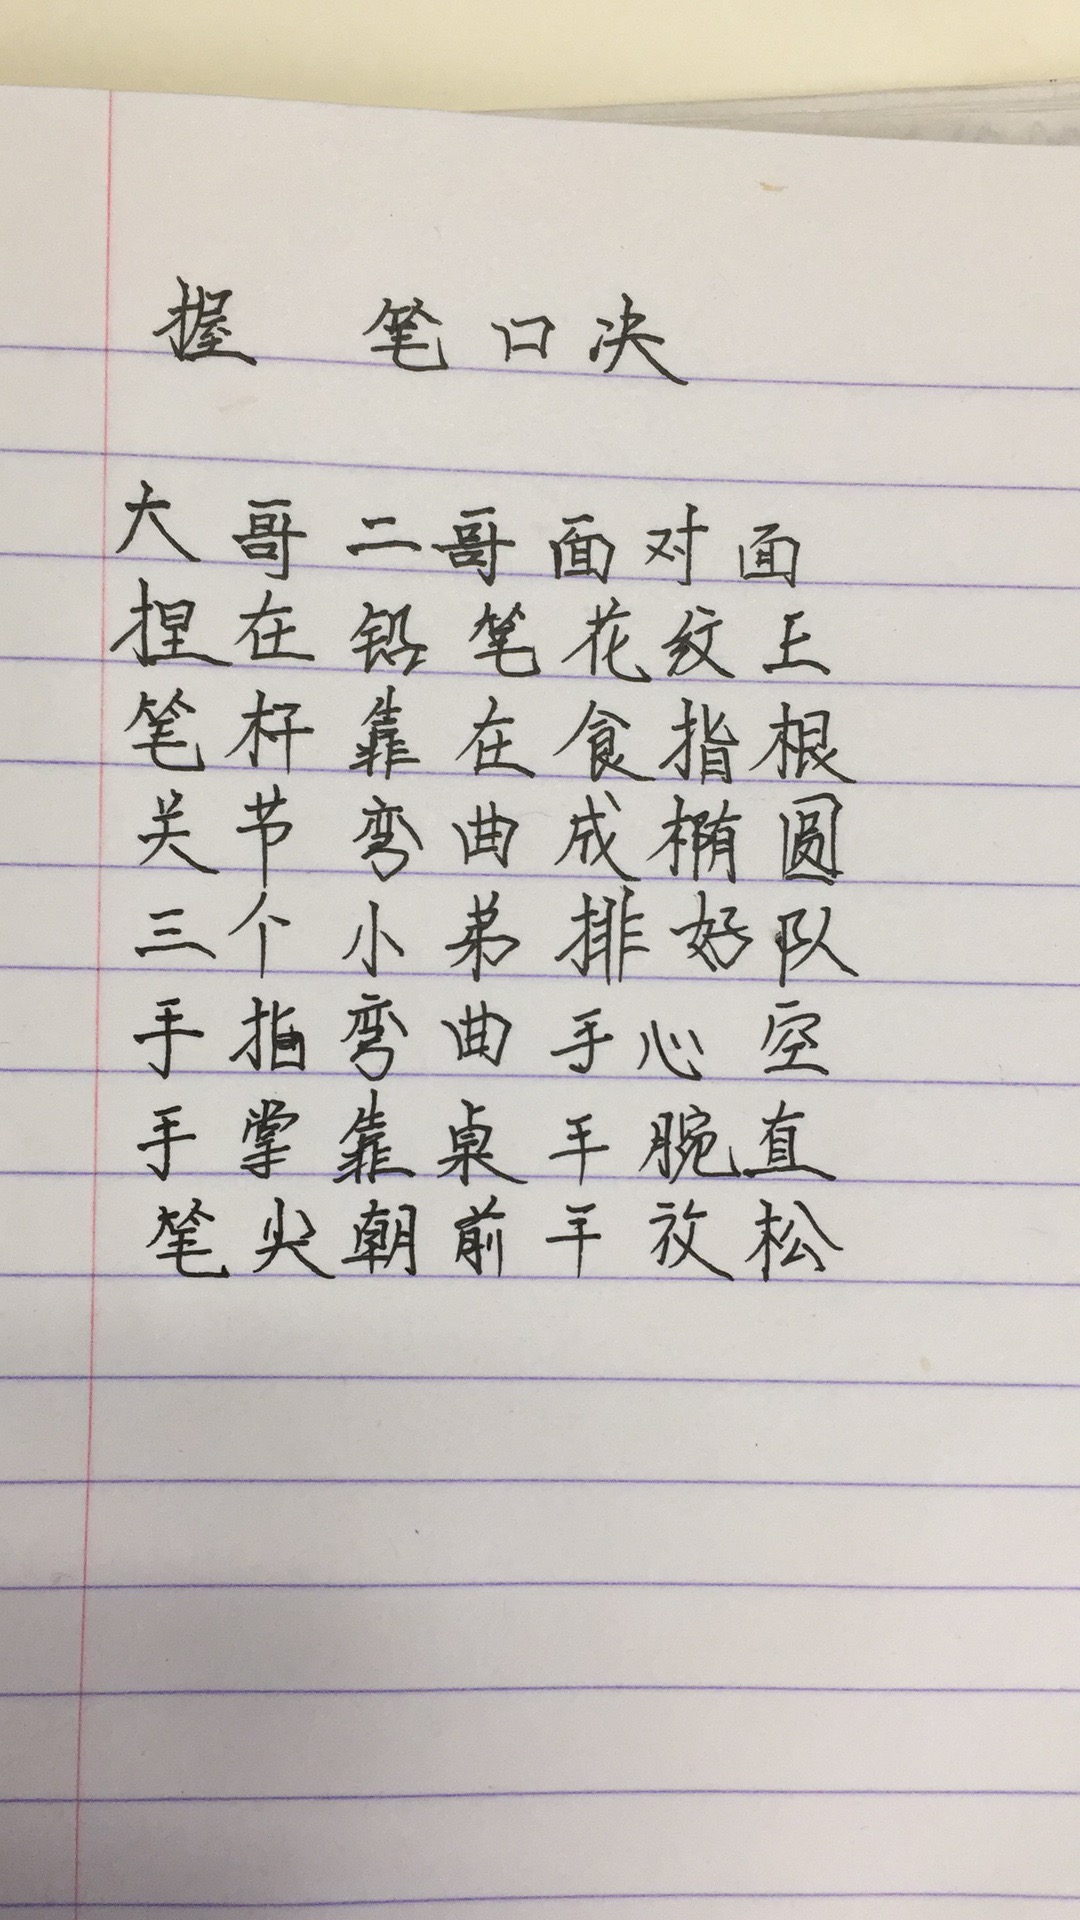 握笔口决
大哥二哥面对面
捏在铅笔花纹上
笔杆靠在食指根
关节弯曲成椭圆
三个小弟排好队
手指弯曲手心空
手掌靠桌手腕直
笔尖朝前手放松